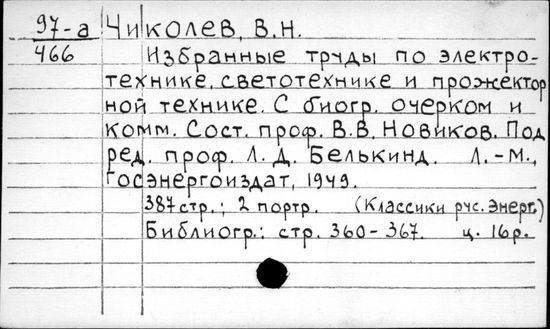 97-а Чиколев, В.Н.
466 Избранные труды по электро-
технике, светотехнике и прожектор
ной технике. С биогр. очерком и
комм. Сост. проф. В.В. Новиков. Под
ред. проф. Л. Д. Белькинд. Л.-М.,
Госэнергоиздат, 1949.
387 стр.; 2 портр. (Классики рус. энерг.)
Библиогр.: стр. 360-367. ц. 16р.